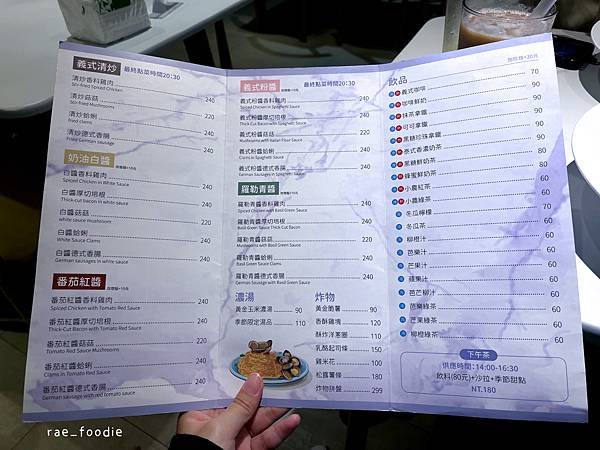 義式清炒 最終點菜時間20:30
清炒香料雞肉 240
Stir-fried Spiced Chicken
清炒菇菇 220
Stir-fried Mushrooms
清炒蛤蜊 240
fried clams
清炒德式香腸 240
Fried German sausage
奶油白醬
白醬香料雞肉 240
Spiced Chicken in White Sauce
白醬厚切培根 240
Thick-cut bacon in white sauce
白醬菇菇 220
white sauce mushroom
白醬蛤蜊 240
White Sauce Clams
白醬德式香腸 240
German Sausages in white sauce
番茄紅醬
番茄紅醬香料雞肉 240
Spiced Chicken with Tomato Red Sauce
番茄紅醬厚切培根 240
Thick-cut Bacon with Tomato Red Sauce
番茄紅醬菇菇 220
Tomato Red Sauce Mushrooms
番茄紅醬蛤蜊 240
Clams in Tomato Red Sauce
番茄紅醬德式香腸 240
German sausage with red tomato sauce
義式粉醬 最終點菜時間20:30
義式粉醬香料雞肉 240
Spiced Chicken in Spaghetti Sauce
義式粉醬厚切培根 240
Thick-Cut Bacon with Spaghetti Sauce
義式粉醬菇菇 220
Mushrooms with Italian Flour Sauce
義式粉醬蛤蜊 240
Clams in Spaghetti Sauce
義式粉醬德式香腸 240
German Sausages in Spaghetti Sauce
羅勒青醬
羅勒青醬香料雞肉 240
Spiced Chicken with Basil Green Sauce
羅勒青醬厚切培根 240
Basil Green Sauce Thick Cut Bacon
羅勒青醬菇菇 220
Mushrooms with Basil Green Sauce
羅勒青醬蛤蜊 240
Basil Green Sauce Clams
羅勒青醬德式香腸 240
German Sausage with Basil Green Sauce
濃湯
黃金玉米濃湯 90
季節限定湯品 110
炸物
黃金脆薯 90
香酥雞塊 120
酥炸洋蔥圈 110
乳酪起司條 150
雞米花 100
松露薯條 180
炸物拼盤 299
飲品
義式咖啡 70
咖啡鮮奶 90
抹茶拿鐵 90
可可拿鐵 90
黑糖珍珠拿鐵 90
泰式香濃奶茶 80
黑糖鮮奶茶 80
蜂蜜鮮奶茶 80
小農紅茶 60
小農綠茶 60
冬瓜檸檬 70
冬瓜茶 60
柳橙汁 60
芭樂汁 60
芒果汁 60
蘋果汁 60
芭芒柳汁 60
芭樂綠茶 60
芒果綠茶 60
柳橙綠茶 60
下午茶
供應時間：14:00-16:30
飲料(80元)+沙拉+季節甜點
NT.180
rae_foodie